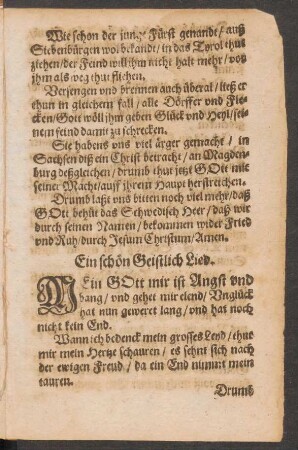 Wie schon der junge Fürst genandt/ auß
Siebenbürgen wol bekandt/ in das Tyrol thut
ziehen/ der Feind will ihm nicht halt mehr/ von
jhm als weg thut fliehen.
Versengen und brennen auch überal/ ließ er
thun in gleichem fall/ alle Dörffer und Fle-
cken/ Gott wöll ihm geben Glück vnd Heyl/ sei-
nem feind damit zu schrecken.
Sie habens uns viel ärger gemacht/ in
Sachsen diß ein Christ betracht/ an Magden-
burg deßgleichen/ drumb thut jetzt GOtt mit
seiner Macht/ auff ihrem Haupt herstreichen.
Drumb laßt uns bitten noch viel mehr/ daß
GOtt behüt das Schwedisch Heer/ daß wir
durch seinen Namen/ bekommen wider Fried
vnd Ruh/ durch Jesum Christum/ Amen.
Ein schön Geistlich Lied.
MEin GOtt mir ist Angst vnd
bang/ vnd gehet mir elend/ Vnglück
hat nun geweret lang/ vnd hat noch
nicht kein End.
Wann ich bedenck mein grosses Leyd/ thut
mir mein Hertze schauren/ es sehnt sich nach
der ewigen Freud/ da ein End nimmt mein
tauren.
Drumb